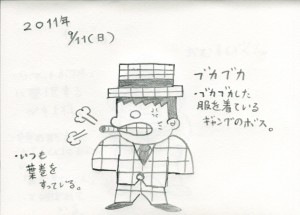 2011年
9/11(日)
ブカブカ
・ブカブカした
服を着ている
ギャングのボス。
・いつも
葉巻を
すっている。